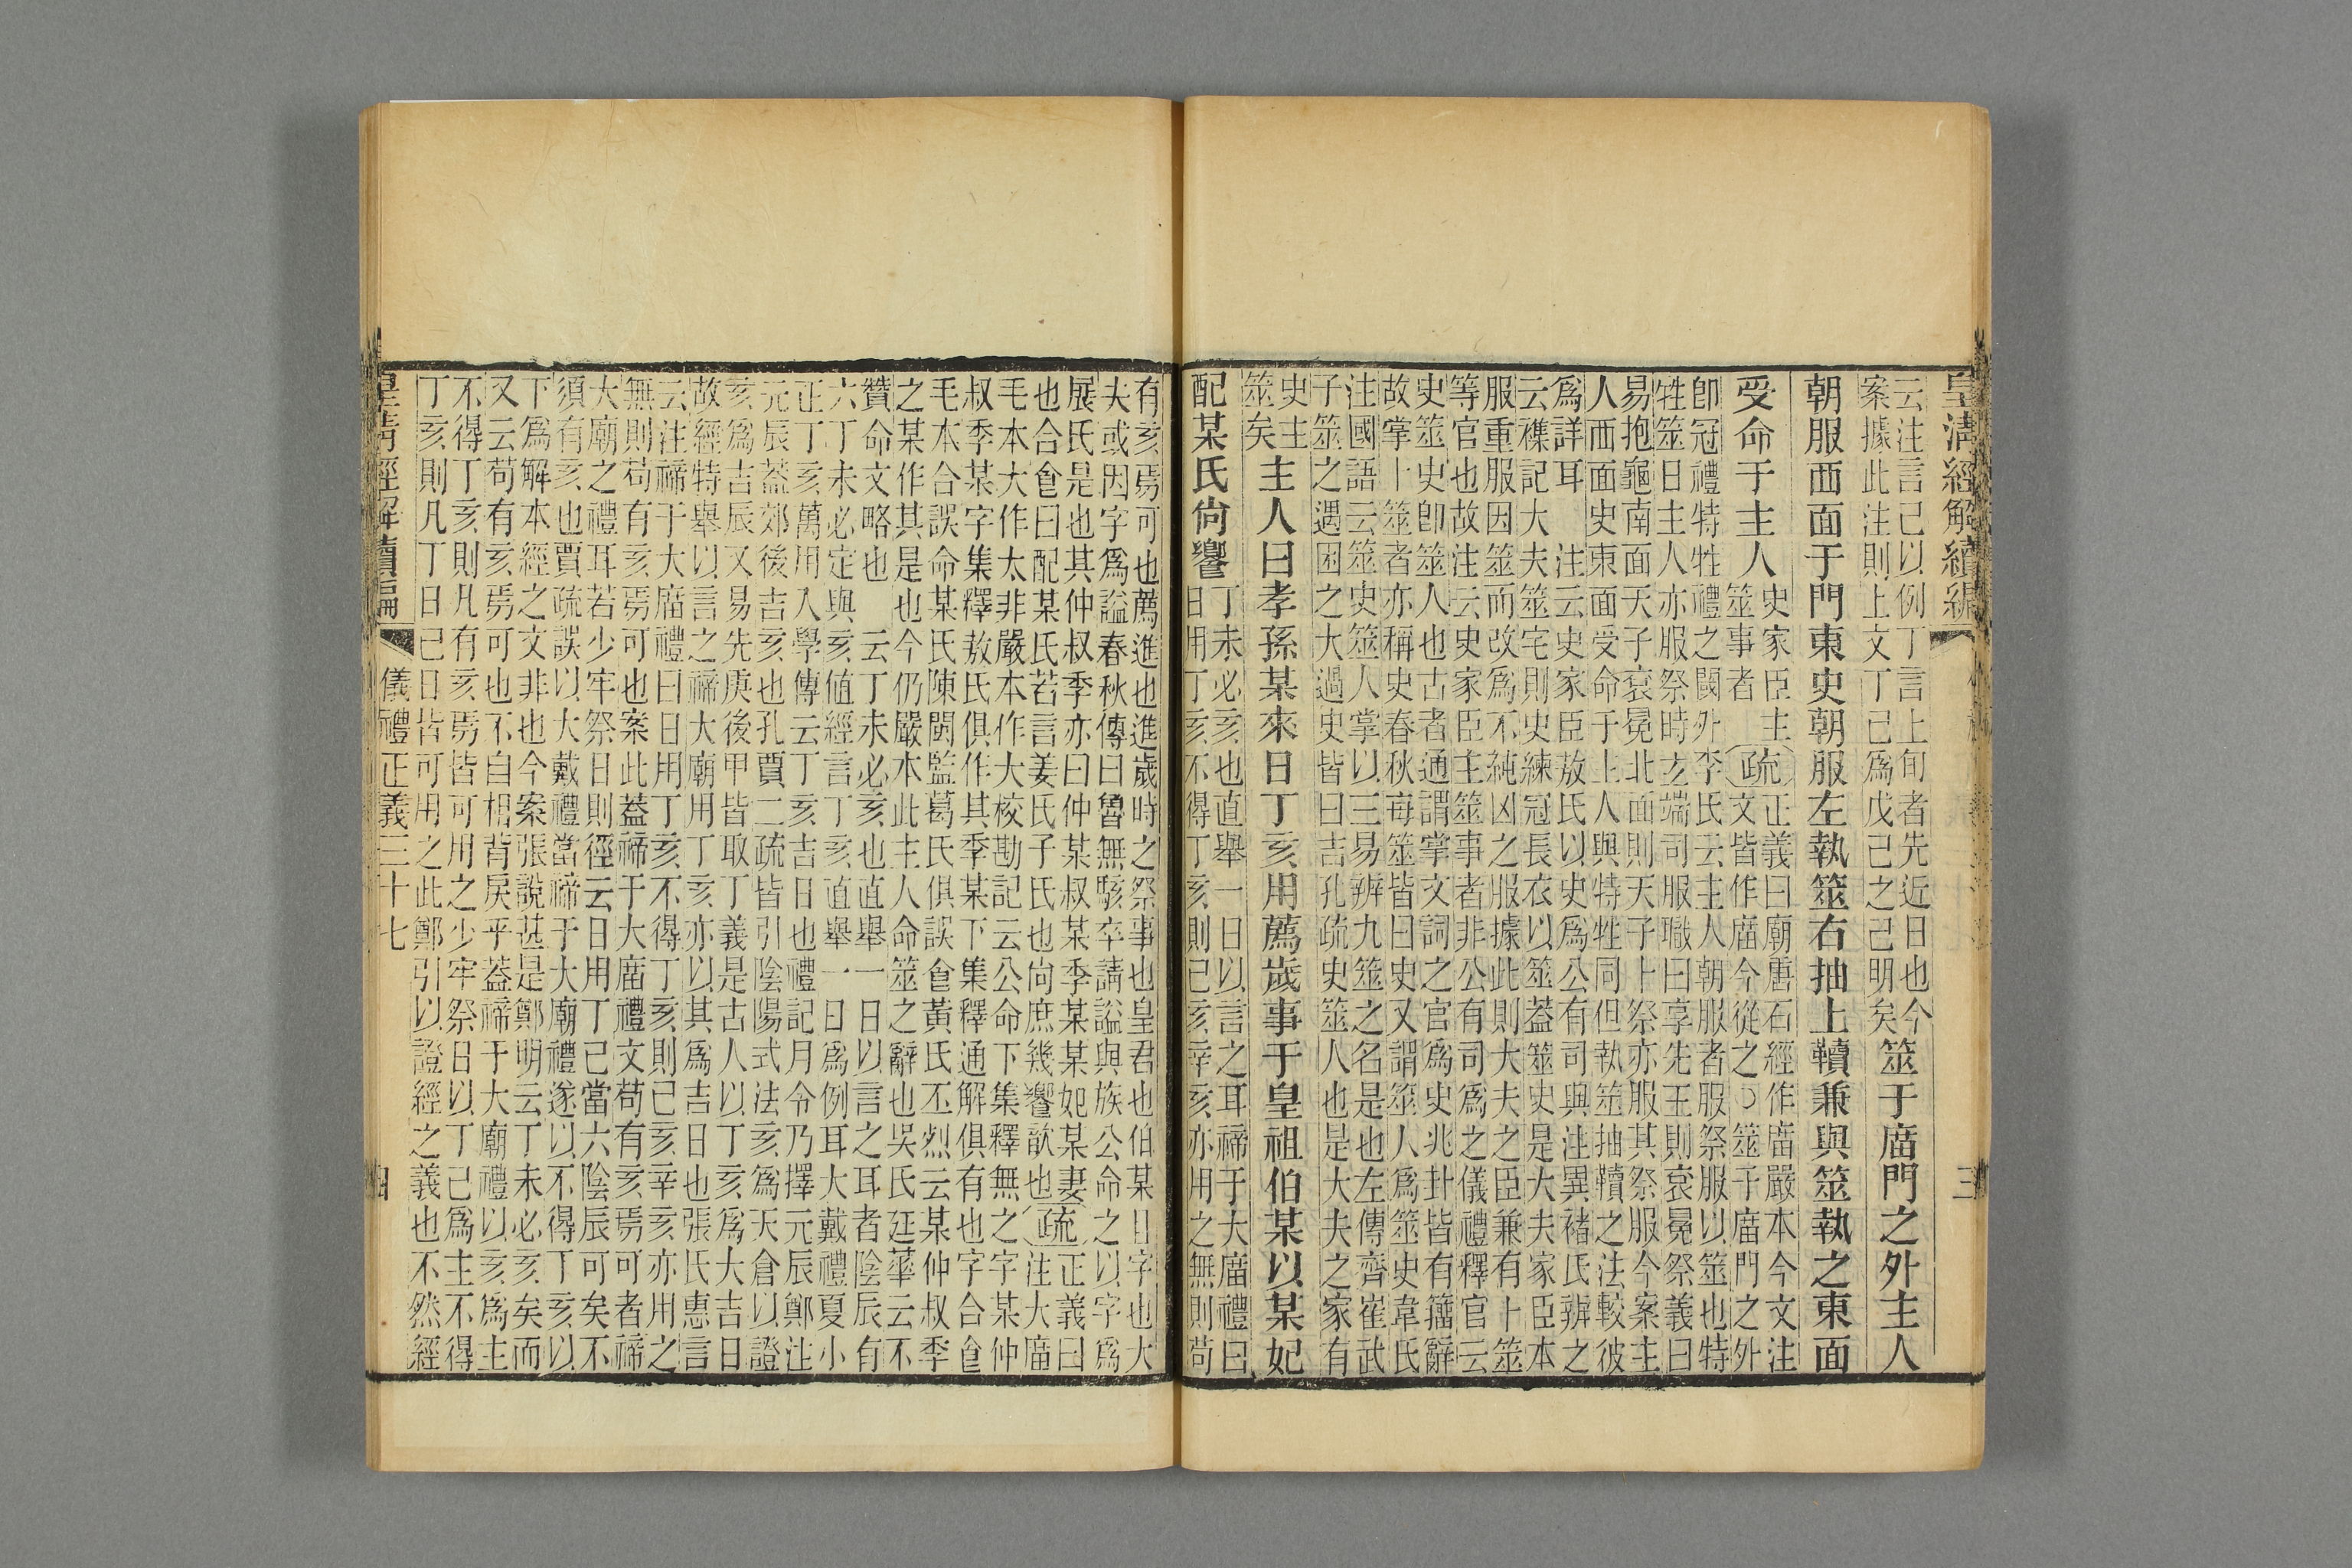 皇清經解續編 三
云注言己以例丁言上旬者先近日也今
案據此注則上文丁己爲戊己之己明矣
筮于庿門之外主人
朝服西面于門東史朝服左執筮右抽上韇兼與筮執之東面
受命于主人
史家臣主
筮事者
疏
正義曰廟唐石經作庿嚴本今文注
文皆作庿今從之○筮于庿門之外
卽冠禮特牲禮之闑外李氏云主人朝服者服祭服以筮也特
牲筮日主人亦服祭時玄端司服職曰享先王則袞冕祭義曰
易抱龜南面天子袞冕北面則天子卜祭亦服其祭服今案主
人西面史東面受命于主人與特牲同但執筮抽韇之法較彼
爲詳耳　注云史家臣敖氏以史爲公有司與注異褚氏辨之
云襍記大夫筮宅則史練冠長衣以筮蓋筮史是大夫家臣本
服重服因筮而改爲不純凶之服據此則大夫之臣兼有卜筮
等官也故注云史家臣主筮事者非公有司爲之儀禮釋官云
史筮史卽筮人也古者通謂掌文詞之官爲史兆卦皆有籒辭
故掌卜筮者亦稱史春秋每筮皆曰史又謂筮人爲筮史韋氏
注國語云筮史筮人掌以三易辨九筮之名是也左傳齊崔武
子筮之遇困之大過史皆曰吉孔疏史筮人也是大夫之家有
史主
筮矣
主人曰孝孫某來日丁亥用薦歲事于皇祖伯某以某妃
配某氏尙饗
丁未必亥也直舉一日以言之耳禘于大庿禮曰
日用丁亥不得丁亥則己亥辛亥亦用之無則苟
有亥焉可也薦進也進歲時之祭事也皇君也伯某且字也大
夫或因字爲謚春秋傳曰魯無駭卒請謚與族公命之以字爲
展氏是也其仲叔季亦曰仲某叔某季某某妃某妻
也合食曰配某氏若言姜氏子氏也尙庶幾饗歆也
疏
正義曰
注大庿
毛本大作太非嚴本作大校勘記云公命下集釋無之字某仲
叔季某字集釋敖氏俱作其季某下集釋通解俱有也字合食
毛本合誤命某氏陳閩監葛氏俱誤食黃氏丕烈云某仲叔季
之某作其是也今仍嚴本此主人命筮之辭也吳氏廷華云不
贊命文略也　云丁未必亥也直舉一日以言之耳者陰辰有
六丁未必定與亥値經言丁亥直舉一日爲例耳大戴禮夏小
正丁亥萬用入學傳云丁亥吉日也禮記月令乃擇元辰鄭注
元辰蓋郊後吉亥也孔賈二疏皆引陰陽式法亥爲天倉以證
亥爲吉辰又易先庚後甲皆取丁義是古人以丁亥爲大吉日
故經特舉以言之禘大廟用丁亥亦以其爲吉日也張氏惠言
云注禘于大庿禮曰日用丁亥不得丁亥則己亥辛亥亦用之
無則苟有亥焉可也案此蓋禘于大庿禮文苟有亥焉可者禘
大廟之禮耳若少牢祭日則徑云日用丁己當六陰辰可矣不
須有亥也賈疏誤以大戴禮當禘于大廟禮遂以不得丁亥以
下爲解本經之文非也今案張說甚是鄭明云丁未必亥矣而
又云苟有亥焉可也不自相背戾乎蓋禘于大廟禮以亥爲主
不得丁亥則凡有亥焉皆可用之少牢祭日以丁己爲主不得
丁亥則凡丁日己日皆可用之此鄭引以證經之義也不然經
皇清經解續編 儀禮正義三十七 四